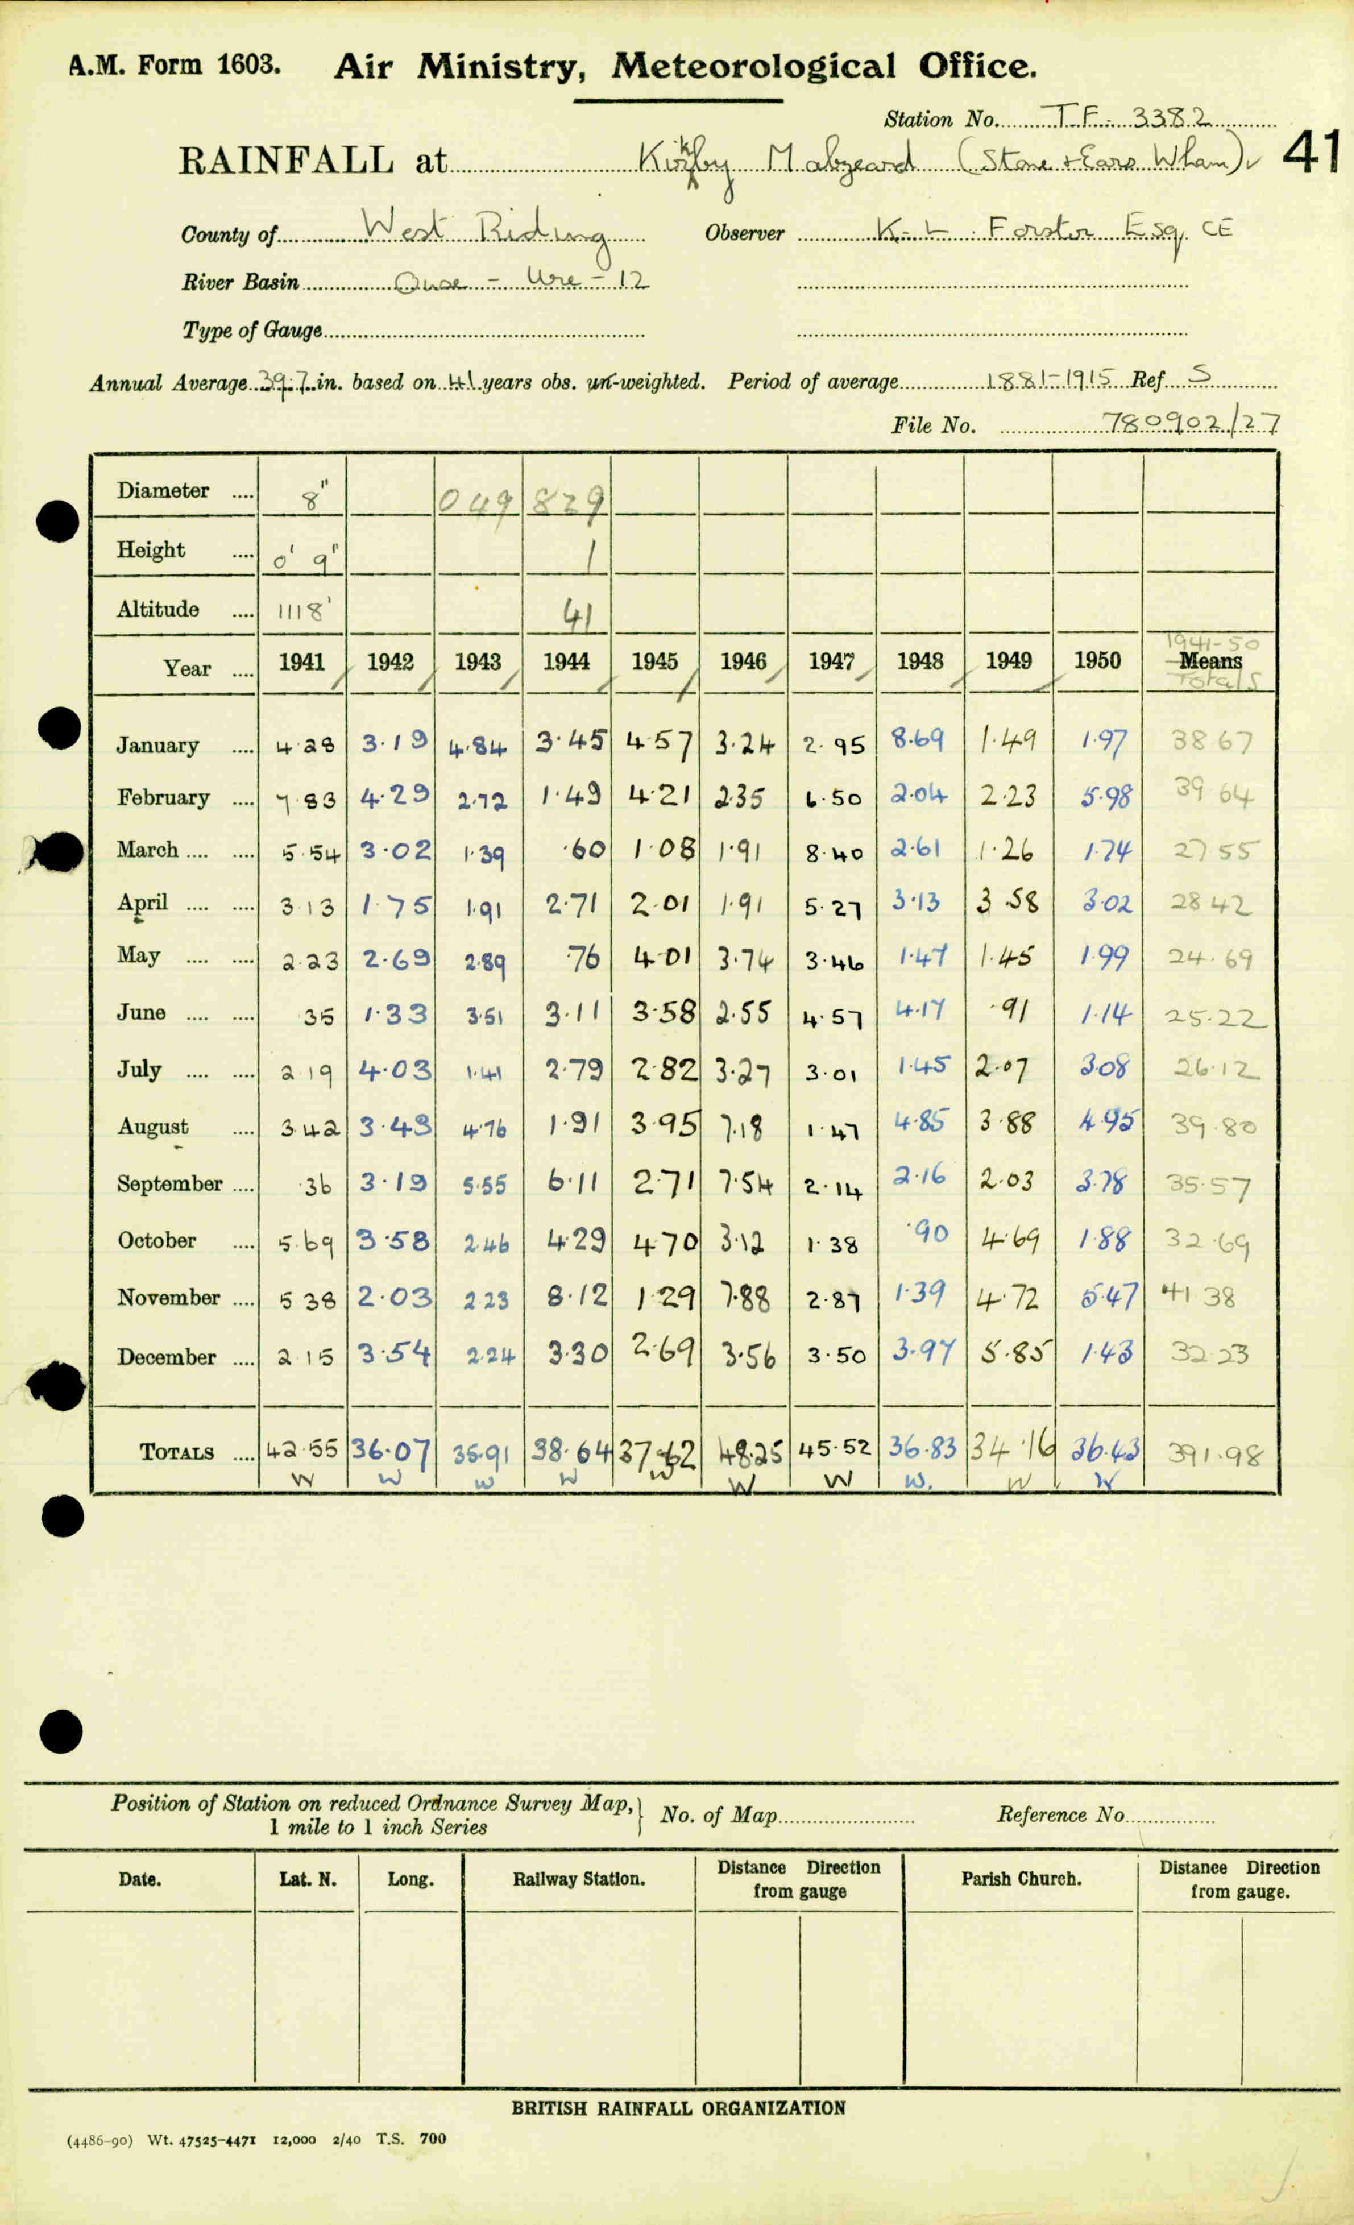 A.M. Form 1603. Air Ministry, Meteorological Office.
Station No. T.F. 3382
RAINFALL at Kirkby Malzeard (Stone & Ears Wham) 41
County of West Riding Observer K. L. Forster Esq. CE
River Basin Ouse - Ure - 12
Type of Gauge
Annual Average 39.7 in. based on 41 years obs. un-weighted. Period of average 1881-1915 Ref. S
File No. 780902/27
Diameter .... 8" 049 829
Height .... 0' 9" 1
Altitude .... 1118' 41
1941-50
Year .... 1941 1942 1943 1944 1945 1946 1947 1948 1949 1950 Means
Totals
January .... 4.28 3.19 4.84 3.45 4.57 3.24 2.95 8.69 1.49 1.97 38 67
February .... 7.83 4.29 2.72 1.49 4.21 2.35 6.50 2.04 2.23 5.98 39 64
March .... .... 5.54 3.02 1.39 .60 1.08 1.91 8.40 2.61 1.26 1.74 27 55
April .... .... 3 13 1.75 1.91 2.71 2.01 1.91 5.27 3.13 3.58 3.02 28 42
May .... .... 2.23 2.69 2.89 .76 4.01 3.74 3.46 1.47 1.45 1.99 24.69
June .... .... .35 1.33 3.51 3.11 3.58 2.55 4.57 4.17 .91 1.14 25.22
July .... .... 2 19 4.03 1.41 2.79 2.82 3.27 3.01 1.45 2.07 3.08 26.12
August .... 3.42 3.43 4.76 1.91 3.95 7.18 1.47 4.85 3.88 4.95 39.80
September .... .36 3.19 5.55 6.11 2.71 7.54 2.14 2.16 2.03 3.78 35.57
October .... 5.69 3.58 2.46 4.29 4.70 3.12 1.38 .90 4.69 1.88 32.69
November .... 5 38 2.03 2.23 8.12 1.29 7.88 2.87 1.39 4.72 5.47 41 38
December .... 2 15 3.54 2.24 3.30 2.69 3.56 3.50 3.97 5.85 1.43 32 23
TOTALS .... 42.55 36.07 35.91 38.64 37.62 48.25 45.52 36.83 34.16 36.43 391.98
W W W W W W W W. W W
Position of Station on reduced Ordnance Survey Map, } No. of Map Reference No.
1 mile to 1 inch Series
Date. Lat. N. Long. Railway Station. Distance Direction from gauge Parish Church. Distance Direction from gauge.
BRITISH RAINFALL ORGANIZATION
(4486-90) Wt. 47525-4471 12,000 2/40 T.S. 700